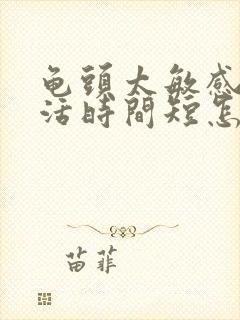 龟頭太敏感
活時間短怎
苗菲